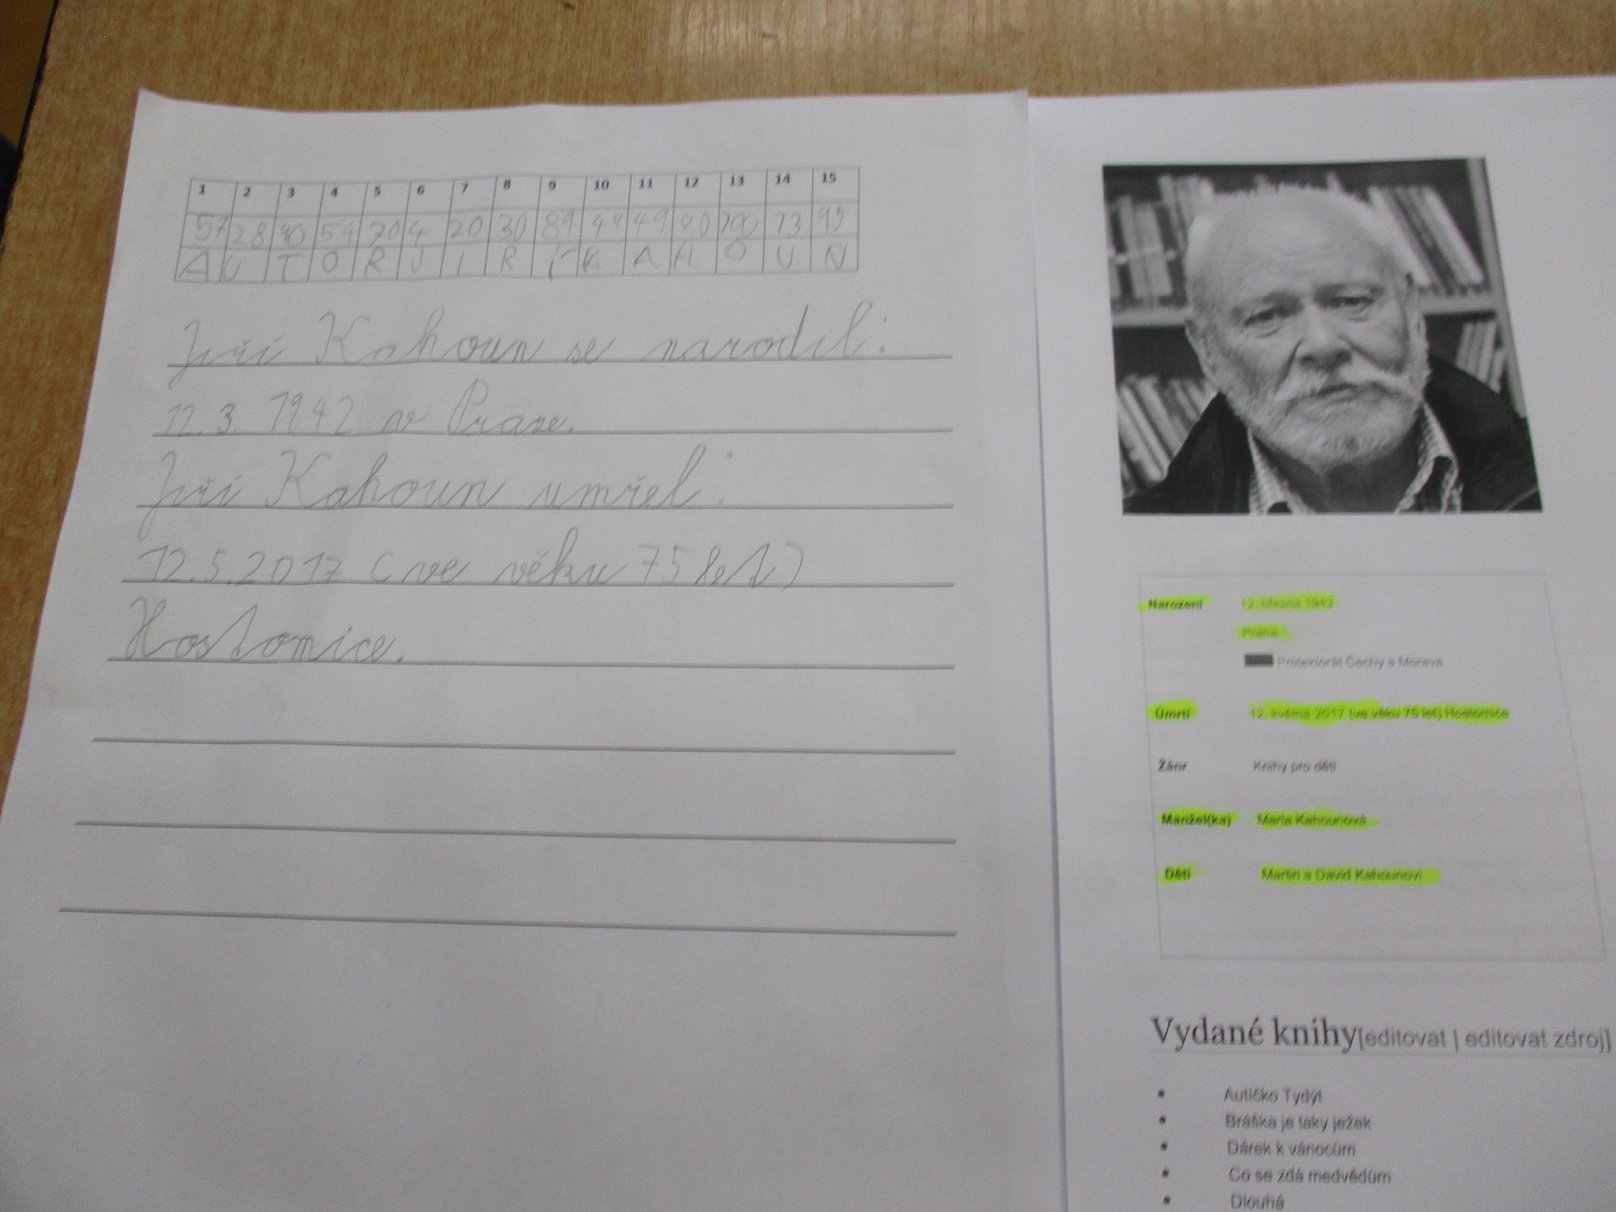 1 2 3 4 5 6 7 8 9 10 11 12 13 14 15
57 28 90 54 70 4 20 30 89 44 49 80 100 73 95
A U T O R J I R Í K A H O U N
Jiří Kahoun se narodil:
12.3. 1942 v Praze.
Jiří Kahoun umřel:
12.5.2017 (ve věku 75 let)
Hostomice.
Narození 12. března 1942
Praha
Protektorát Čechy a Morava
Úmrtí 12. května 2017 (ve věku 75 let) Hostomice
Žánr Knihy pro děti
Manžel(ka) Marie Kahounová
Děti Martin a David Kahounovi
Vydané knihy[editovat | editovat zdroj]
• Autíčko Tydýt
• Bráška je taky ježek
• Dárek k vánocům
• Co se zdá medvědům
• Dlouhá